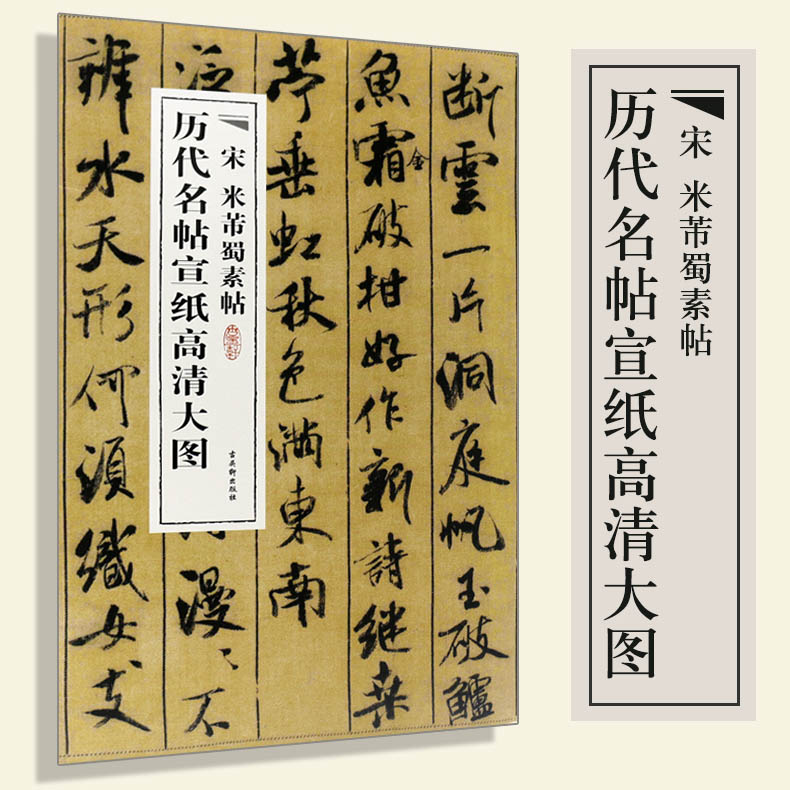 断雲一片洞庭帆玉破鱸
魚霜金破柑好作新詩継桑
苧垂虹秋色満東南
泛
漫〻不
辨水天形何湏織女支
宋 米芾蜀素帖
历代名帖宣纸高清大图
古吳軒出版社
宋 米芾蜀素帖
历代名帖宣纸高清大图